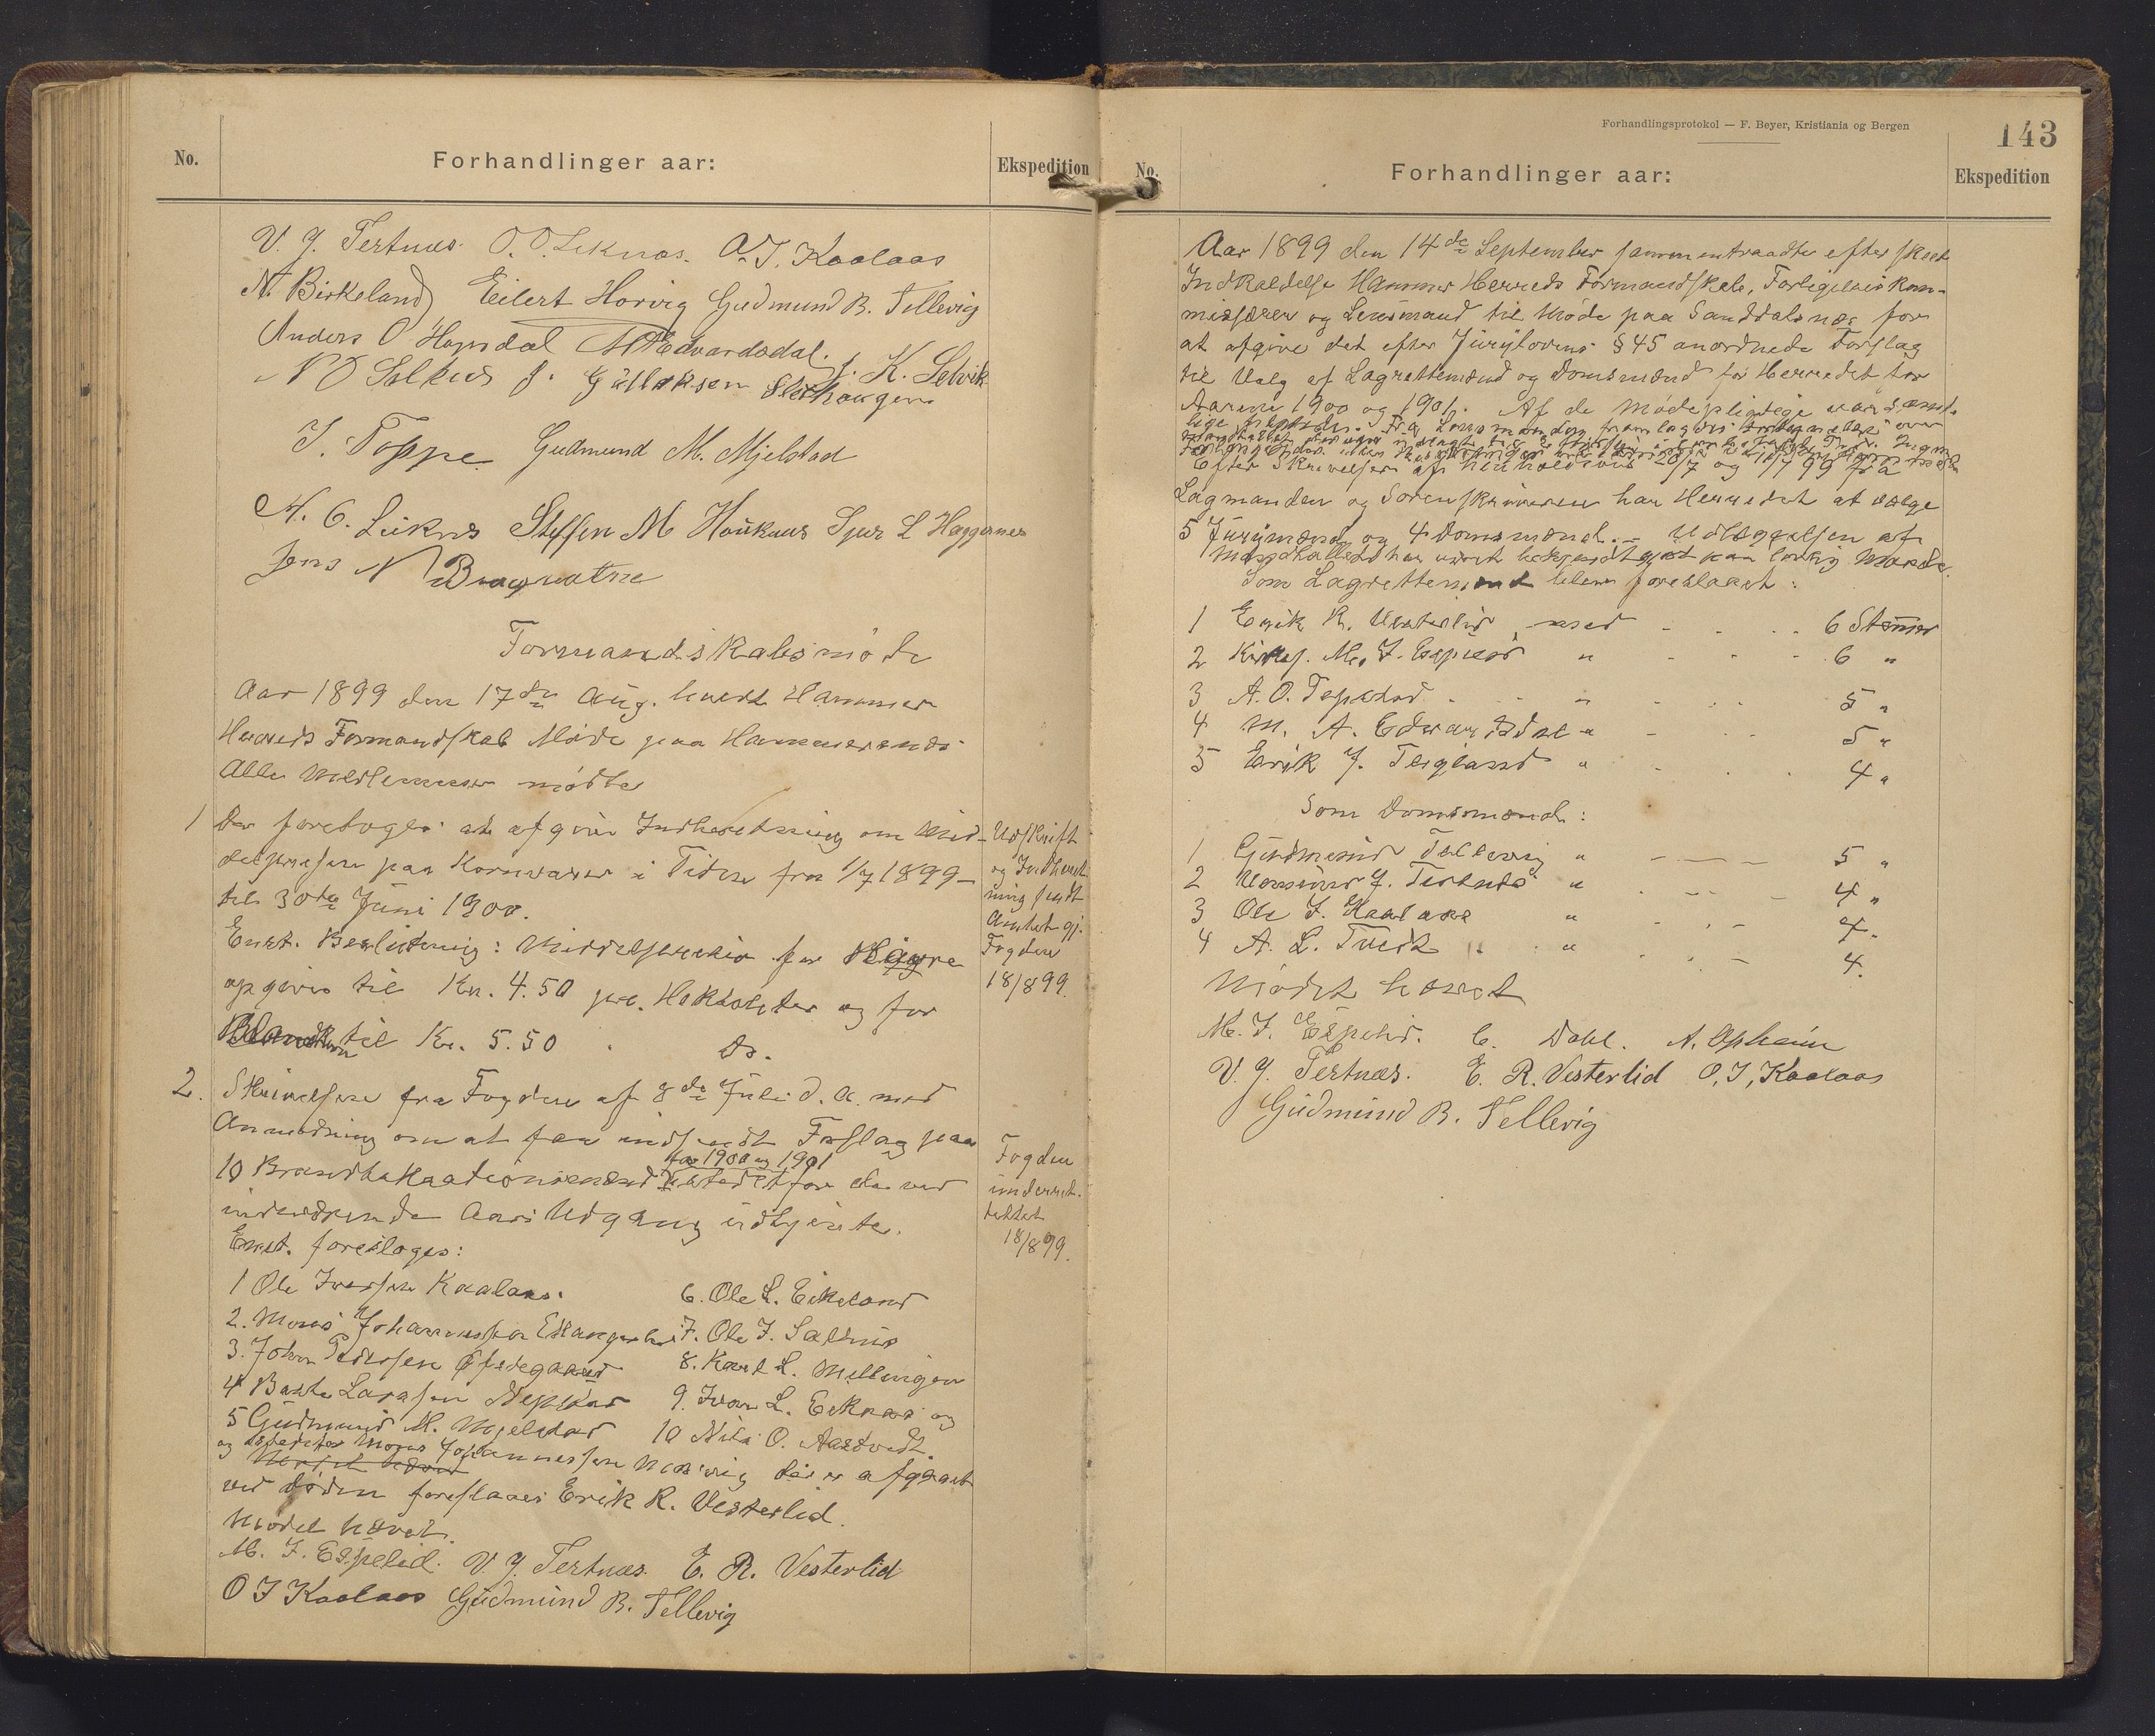 No.
Forhandlinger aar:
Ekspedition
V. J. Tertnæs. O. O. Leknæs. O. J. Kaalaas
N. Birkeland Eilert Horvig Gudmund B. Tellevig
Anders O Hopsdal M A Edvardsdal. J. K. Selvik
J. Gulleksen
J. Toppe Gudmund M. Mjelstad
N. C. Leiknes Steffen M Haukaas Sjur L Haggernes
Jens N
Formandskabsmøde
Aar 1899 den 17de Aug. holdt Hammer
Herreds Formandskab Møde paa Hammersnæs
Alle Medlemmer mødte
1 Der foretoges at afgive Indberetning om Mid-
delprisen paa Kornvarer i Tiden fra 1/7 1899 -
til 30te Juni 1900.
Enst. Beslutning: Middelprisen for Havre
opgives til Kr. 4.50 pr. Hektoliter og for
Blandkorn til Kr. 5.50 . Do.
Udskrift
og Indberet-
ning sendt
Amtet gj.
Fogden
18/8 99.
2. Skrivelse fra Fogden af 8de Juli d. A. med
Anmodning om at faa indsendt Forslag paa
for 1900 og 1901
10 Brandtakstationsmænd istedetfor de ved
indeværende Aars Udgang udtjente.
Enst. foresloges:
Fogden
underret-
tet
18/8 99.
1 Ole Iversen Kaalaas.
6. Ole L. Eikeland
2. Mons Johannessen
7. Ole J. Salhus
3. John Pedersen Øfstegaard
8. Karl L. Mellingen
4 Larssen
9. Ivar L. Eiknæs og
5 Gudmund M. Mjelstad
10 Nils O. Aastvedt.
og istedetfor Mons Johannessen der er afgaaet
ved Døden foreslaaes Erik R. Vesterlid.
Mødet hævet.
M. J. Espelid. V. J. Tertnæs. E. R. Vesterlid
O J Kaalaas Gudmund B. Tellevig
Forhandlingsprotokol — F. Beyer, Kristiania og Bergen
143
No.
Forhandlinger aar:
Ekspedition
Aar 1899 den 14de September sammentraadte efter skeet
Indkaldelse Hammer Herreds Formandskab, Forligelseskom-
missærer og Lensmand til Møde paa Sanddalsnæs for
at afgive det efter Jurylovens § 45 anordnede Forslag
til Valg af Lagrettemænd og Domsmænd for Herredet for
Aarene 1900 og 1901. Af de Mødepligtige var samt-
lige tilstede. Fra Lensmanden fremlagdes over
Efter Skrivelser af henholdsvis 20/7 og 1/7 99 fra
Lagmanden og Sorenskriveren har Herredet at vælge
5 Jurymænd og 4 Domsmænd. - Udlæggelsen af
Mandtallet har været bekjendtgjort paa lovlig Maade.
Som Lagrettemænd bleve foreslaaet:
1 Erik R. Vesterlid med - . . . 6 Stemmer
2 Kirkes. M. J. Espelid " - . - . 6 "
3 A. O. Tepstad . . " . . 5 "
4 M. A. Edvardsdal " - . . 5 "
5 Erik J. Teigland " . . 4 "
Som Domsmænd:
1 Gudmund Tellevig " - - - 5 "
2 J. Tertnæs " . - - 4 "
3 Ole J. Kaalaas " . - 4.
4 A. L. Tveit " . . - 4.
Mødet hævet
M. J. Espelid. C. Dahl. A. Opheim
V. J. Tertnæs. E. R. Vesterlid O. J. Kaalaas
Gudmund B. Tellevig